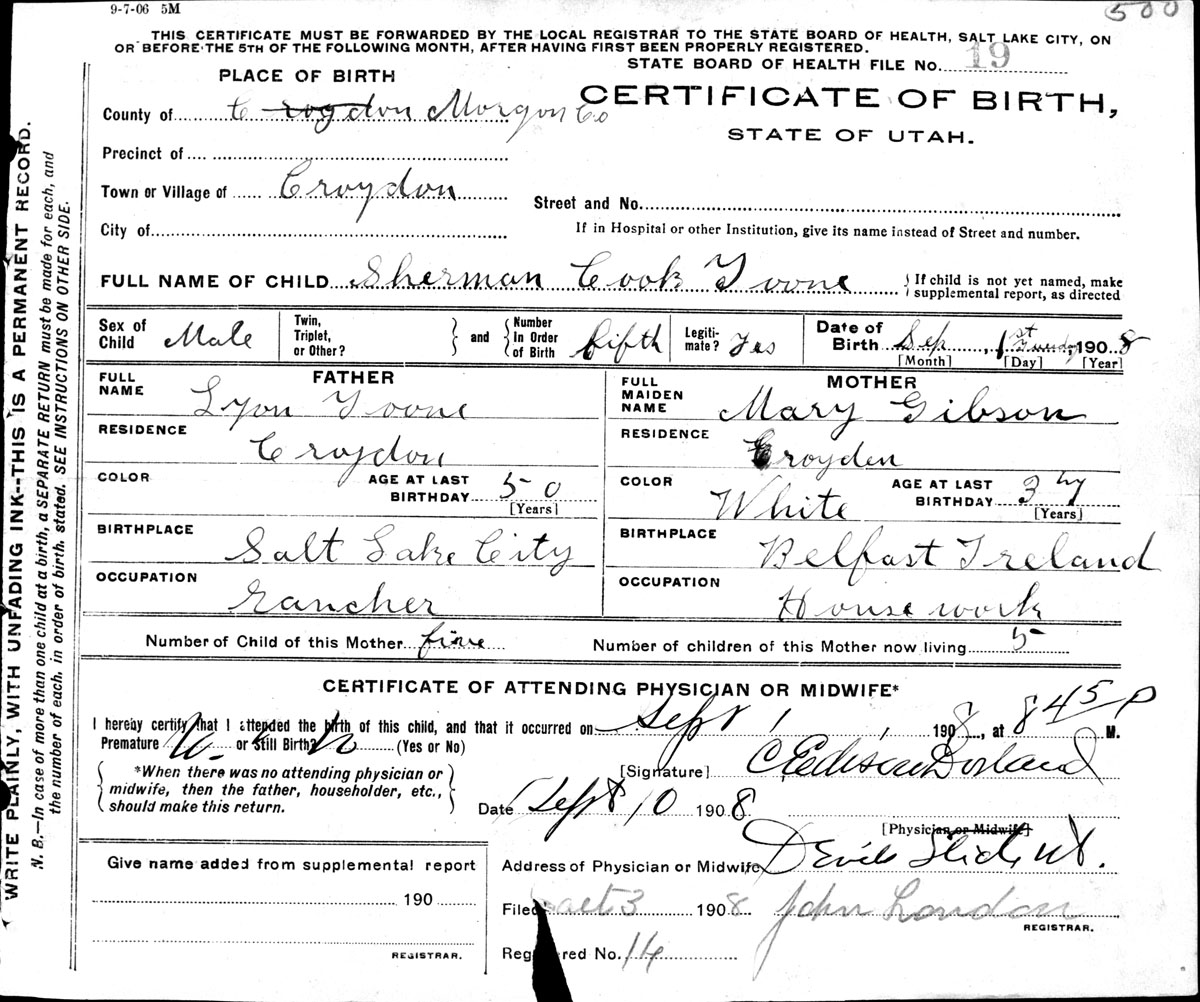 9-7-06 5M
500
THIS CERTIFICATE MUST BE FORWARDED BY THE LOCAL REGISTRAR TO THE STATE BOARD OF HEALTH, SALT LAKE CITY, ON
OR BEFORE THE 5TH OF THE FOLLOWING MONTH, AFTER HAVING FIRST BEEN PROPERLY REGISTERED.
STATE BOARD OF HEALTH FILE No. 19
PLACE OF BIRTH
CERTIFICATE OF BIRTH,
STATE OF UTAH.
County of Croydon Morgan Co
Precinct of
Town or Village of Croydon
Street and No.
City of
If in Hospital or other Institution, give its name instead of Street and number.
FULL NAME OF CHILD Sherman Cook Toone
If child is not yet named, make supplemental report, as directed
Sex of Child Male
Twin, Triplet, or Other?
and
Number In Order of Birth fifth
Legitimate? Yes
Date of Birth Sep, 1st, 1908
[Month] [Day] [Year]
FATHER
FULL NAME Lyon Toone
RESIDENCE Croydon
COLOR
AGE AT LAST BIRTHDAY 50
[Years]
BIRTHPLACE Salt Lake City
OCCUPATION Rancher
MOTHER
FULL MAIDEN NAME Mary Gibson
RESIDENCE Croyden
COLOR White
AGE AT LAST BIRTHDAY
[Years]
BIRTHPLACE Belfast Ireland
OCCUPATION House work
Number of Child of this Mother five
Number of children of this Mother now living 5
CERTIFICATE OF ATTENDING PHYSICIAN OR MIDWIFE*
I hereby certify that I attended the birth of this child, and that it occurred on Sept 1, 1908, at 8 45 P M.
Premature or Still Birth? (Yes or No)
*When there was no attending physician or midwife, then the father, householder, etc., should make this return.
[Signature] C Edison Dorland
Date Sept 10 1908
[Physician or Midwife]
Address of Physician or Midwife Devils Slide Ut.
Give name added from supplemental report
190
REGISTRAR.
Filed Oct 3 1908 John London
REGISTRAR.
Registered No. 14
WRITE PLAINLY, WITH UNFADING INK--THIS IS A PERMANENT RECORD.
N. B.—In case of more than one child at a birth, a SEPARATE RETURN must be made for each, and
the number of each, in order of birth, stated. SEE INSTRUCTIONS ON OTHER SIDE.